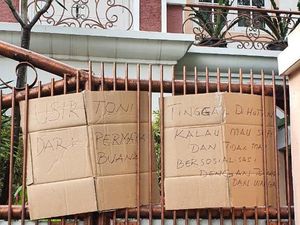 USIR TONI
DARI PERMATA
BUANA
TINGGAL DI HUTAN
KALAU MAU
DAN TIDAK MAU
BERSOSIALISASI
DENGAN
DAN WARGA